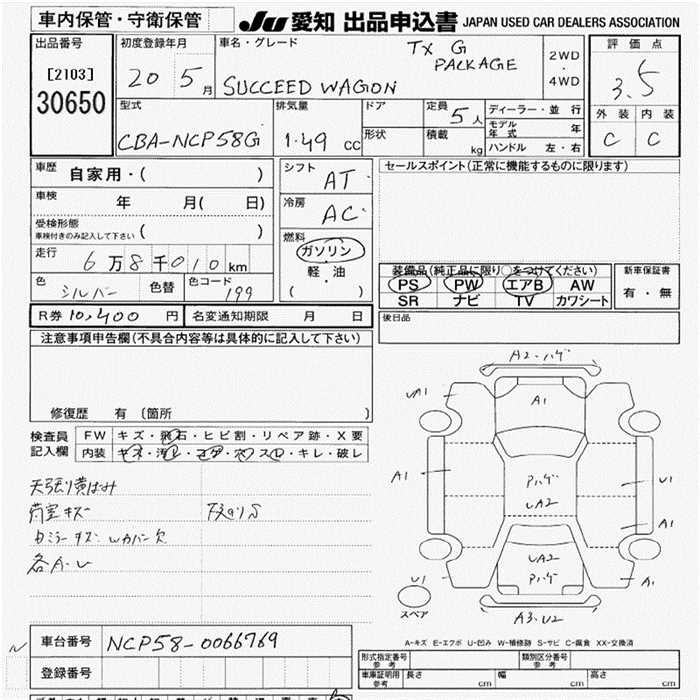 車内保管・守衛保管
JU 愛知 出品申込書 JAPAN USED CAR DEALERS ASSOCIATION
出品番号
[2103]
30650
初度登録年月
20 5月
車名・グレード
TX G PACKAGE
SUCCEED WAGON
2WD
・
4WD
評価点
3.5
外装 内装
C C
型式
CBA-NCP58G
排気量
1.49 cc
ドア
形状
定員 5人
積載 kg
ディーラー・並行
モデル年式 年
ハンドル 左・右
車歴 自家用・( )
車検 年 月( 日)
受検形態
車検付きのみ記入して下さい ( )
走行 6万8千010km
色 シルバー 色替 色コード 199
シフト AT
冷房 AC
燃料
ガソリン
軽・油
( )
セールスポイント(正常に機能するものに限ります)
装備品(純正品に限り○をつけてください)
PS PW エアB AW
SR ナビ TV カワシート
新車保証書
有・無
R券 10,400 円 名変通知期限 月 日
後日品
注意事項申告欄(不具合内容等は具体的に記入して下さい)
修復歴 有 〔箇所 〕
検査員記入欄
FW キズ・飛石・ヒビ割・リペア跡・X要
内装 キズ・汚レ・コゲ・穴・スレ・キレ・破レ
天張り黄ばみ
荷室キズ 下廻りS
カバー欠
各A・U
A2・ハゲ
UA1
A1
A1
Pハゲ
UA2
U1
A1
UA2
Pハゲ
U1
A1
スペア
A3.U2
A-キズ E-エクボ U-凹み W-補修跡 S-サビ C-腐食 XX-交換済
車台番号 NCP58-0066769
登録番号
形式指定番号 参考 類別区分番号 参考
車庫証明用 参考 長さ cm 幅 cm 高さ cm